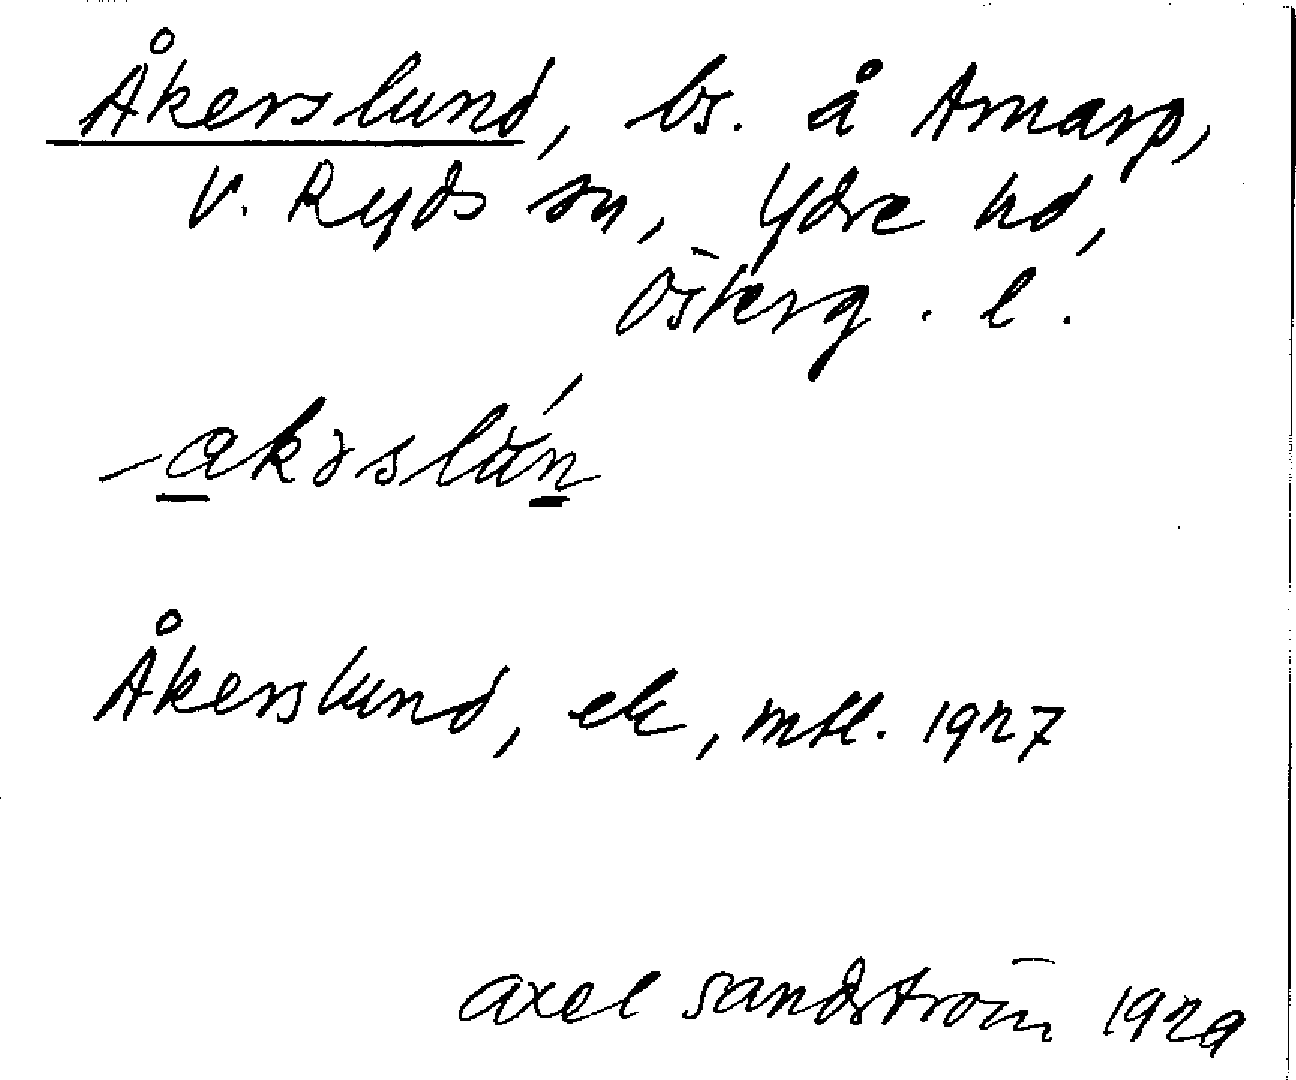 Åkerslund, bs. å Amarp,
V. Ryds sn, Ydre hd,
Österg. l.
Åkerslund, ek, mtl. 1927
Axel Sandström 1929